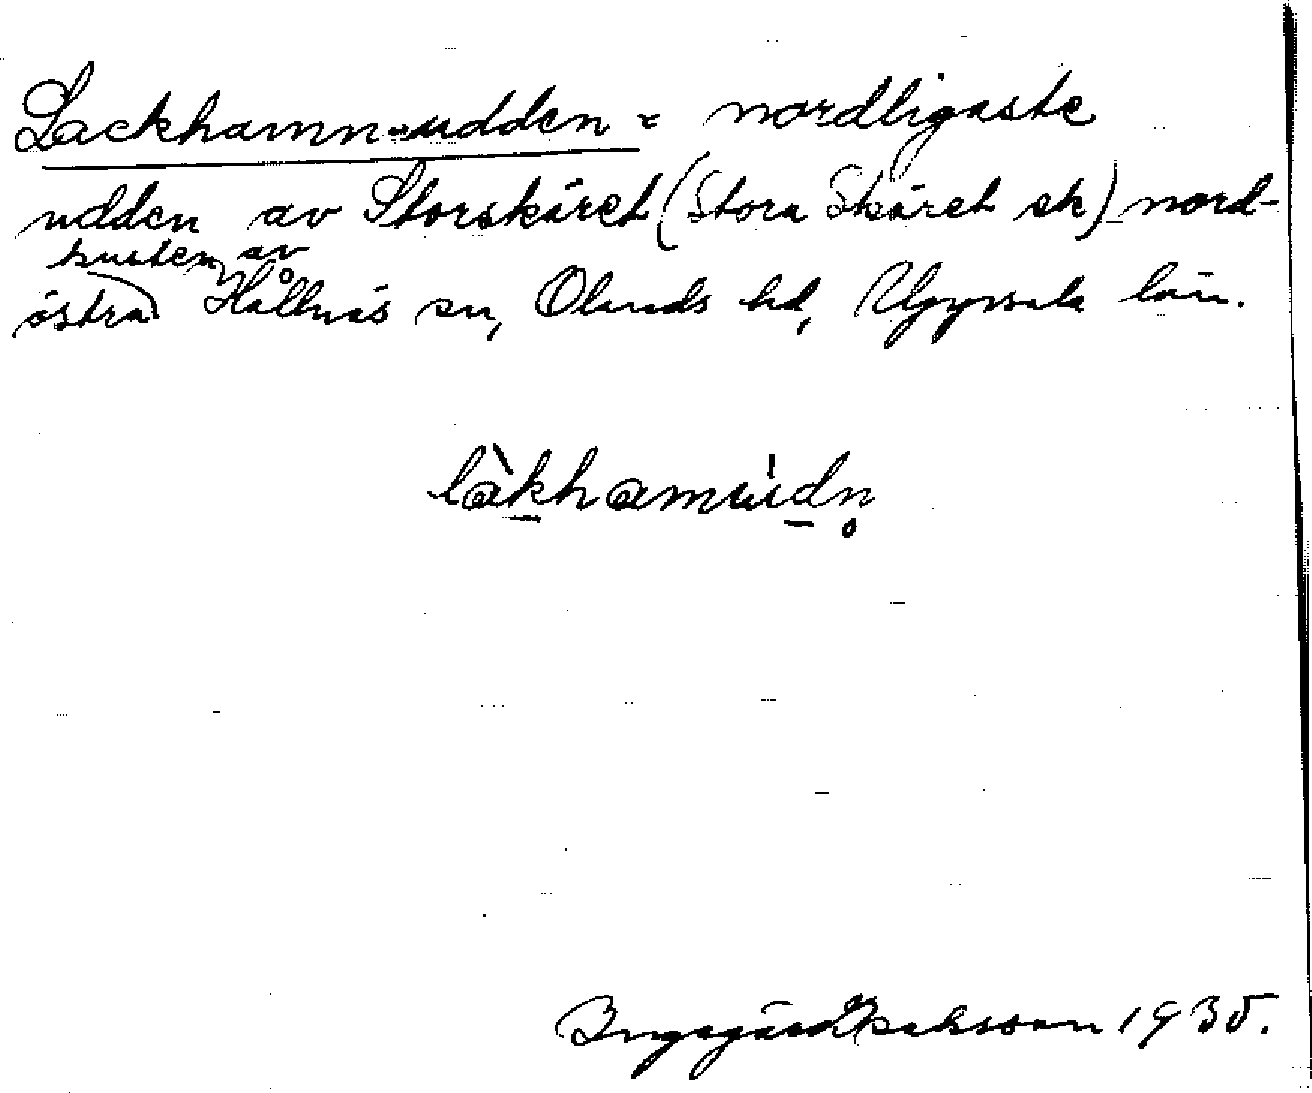 Lackhamn-udden = nordligaste
udden av Storskäret (Stora Skäret ek) nord-
kusten av
östra Hållnäs sn, Olands hd, Uppsala län.
làkhamúdn̥
Isaksson 1935.